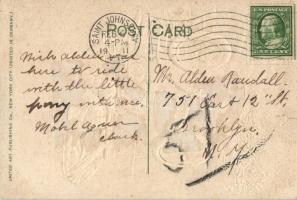 SAINT JOHNSBURY
FEB
4-PM
19 11
VT.
U.S. POSTAGE
ONE CENT
POST CARD
Wish Alden was
here to ride
with the little
pony with me.
Mabel
Clark.
Mr. Alden Randall.
751 East 12" St.
Brooklyn.
N.Y.
UNITED ART PUBLISHING CO., NEW YORK CITY (PRINTED IN GERMANY)